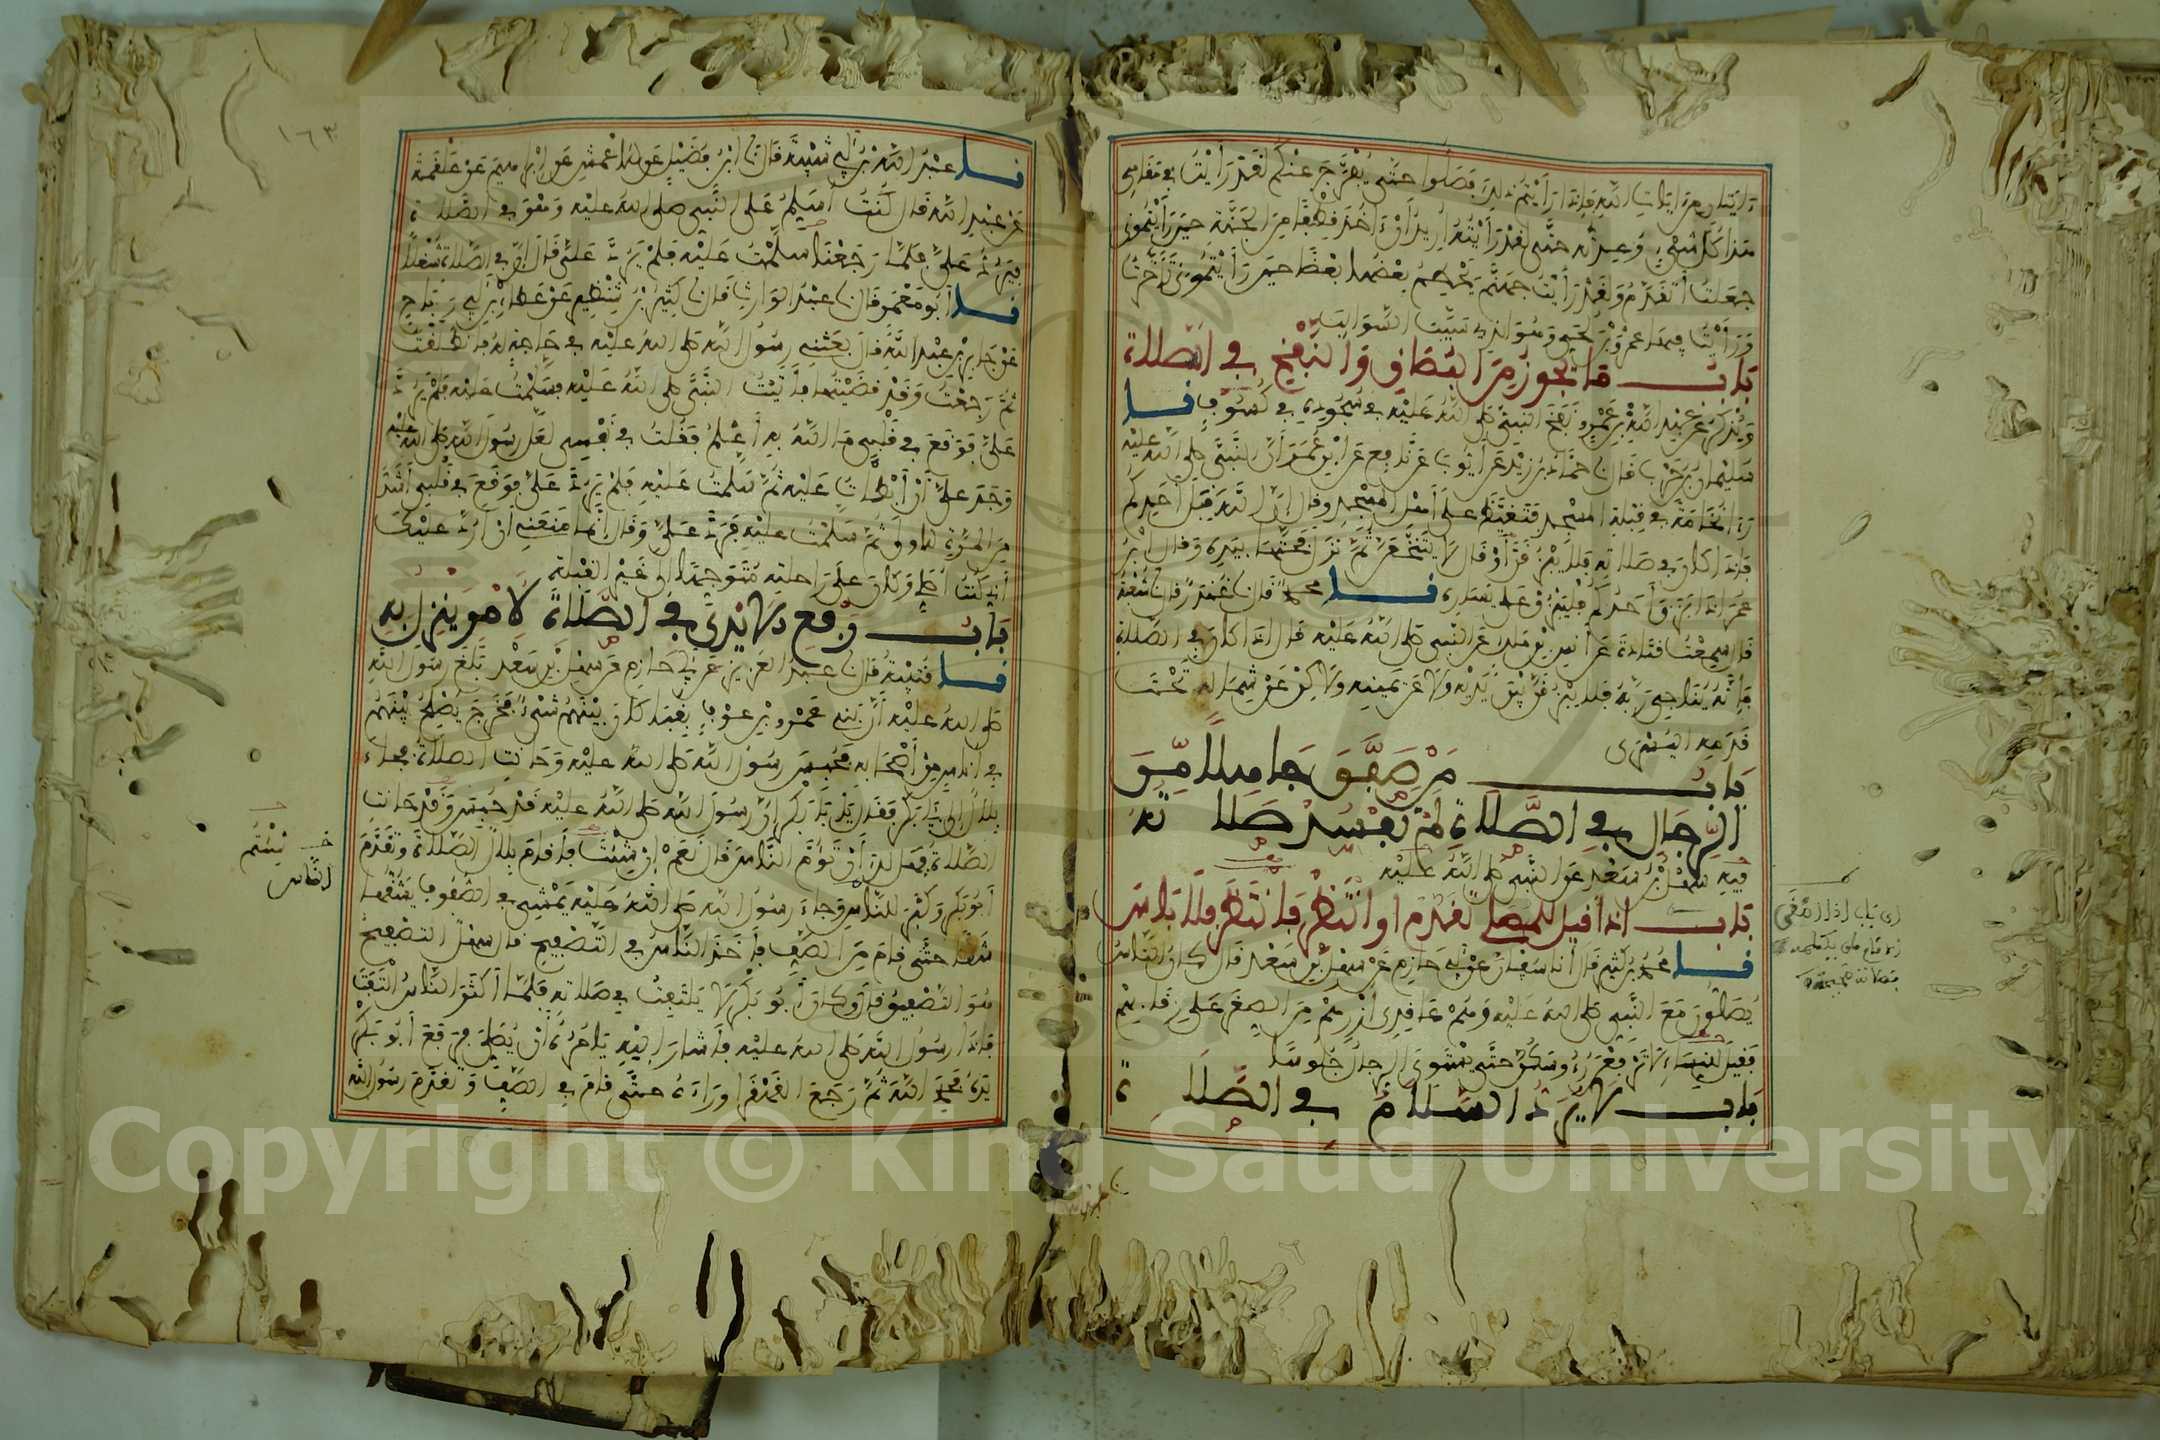 ءايتان من ءايات الله فإذا رأيتم ذلك فصلوا حتى يفرج عنكم لقد رأيت في مقامي
هذا كل شيء وعدته حتى لقد رأيته أريد أن ءاخذ قطفا من الجنة حين رأيتموني
جعلت أتقدم ولقد رأيت جهنم يحطم بعضها بعضا حين رأيتموني تأخرت
ورأيت فيها عمرو بن لحي وهو الذي سيب السوايب
باب ما يجوز من البصاق والنفخ في الصلاة
ويذكر عن عبد الله بن عمرو نفخ النبي صلى الله عليه في سجوده في كسوف نا
سليمان بن حرب قال نا حماد بن زيد عن أيوب عن نافع عن ابن عمر أن النبي صلى الله عليه
رءا نخامة في قبلة المسجد فتغيظ على أهل المسجد وقال إن الله قبل أحدكم
فإذا كان في صلاته فلا يبزقن أو قال لا يتنخعن ثم نزل فحتها بيده وقال ابن
عمر إذا بزق أحدكم فليبزق على يساره نا محمد قال نا غندر قال نا شعبة
قال سمعت قتادة عن أنس بن مالك عن النبي صلى الله عليه قال إذا كان في الصلاة
فإنه يناجي ربه فلا يبزقن بين يديه ولا عن يمينه ولاكن عن شماله تحت
قدمه اليسرى
باب من صفق جاهلا من
الرجال في الصلاة لم تفسد صلاته
فيه سهل بن سعد عن النبي صلى الله عليه
باب إذا قيل للمصلي تقدم أو انتظر فانتظر فلا باس
نا محمد بن كثير قال أنا سفيان عن أبي حازم عن سهل بن سعد قال كان الناس
يصلون مع النبي صلى الله عليه وهم عاقدي أزرهم من الصغر على رقابهم
فقيل للنساء لا ترفعن رءوسكن حتى يستوي الرجال جلوسا
باب لا يرد السلام في الصلاة
نا عبد الله بن أبي شيبة قال نا ابن فضيل عن الأعمش عن إبراهيم عن علقمة
عن عبد الله قال كنت أسلم على النبي صلى الله عليه وهو في الصلاة
فيرد علي فلما رجعنا سلمت عليه فلم يرد علي قال إن في الصلاة شغلا
نا أبو معمر قال نا عبد الوارث قال نا كثير بن شنظير عن عطاء بن أبي رباح
عن جابر بن عبد الله قال بعثني رسول الله صلى الله عليه في حاجة له فانطلقت
ثم رجعت وقد قضيتها فأتيت النبي صلى الله عليه فسلمت عليه فلم يرد
علي فوقع في قلبي ما الله به أعلم فقلت في نفسي لعل رسول الله صلى الله عليه
وجد علي أن أبطأت عليه ثم سلمت عليه فلم يرد علي فوقع في قلبي أشد
من المرة الأولى ثم سلمت عليه فرد علي وقال إنما منعني أن أرد عليك
أني كنت أصلي وكان على راحلته متوجها إلى غير القبلة
باب رفع الأيدي في الصلاة لأمر ينزل به
نا قتيبة قال نا عبد العزيز عن أبي حازم عن سهل بن سعد بلغ رسول الله
صلى الله عليه أن بني عمرو بن عوف بقباء كان بينهم شيء فخرج يصلح بينهم
في أناس من أصحابه فحبس رسول الله صلى الله عليه وحانت الصلاة فجاء
بلال إلى أبي بكر فقال يا أبا بكر إن رسول الله صلى الله عليه قد حبس وقد حانت
الصلاة فهل لك أن تؤم الناس قال نعم إن شئت فأقام بلال الصلاة وتقدم
أبو بكر وكبر للناس وجاء رسول الله صلى الله عليه يمشي في الصفوف يشقها
شقا حتى قام من الصف فأخذ الناس في التصفيح قال سهل التصفيح
هو التصفيق قال وكان أبو بكر لا يلتفت في صلاته فلما أكثر الناس التفت
فإذا رسول الله صلى الله عليه فأشار إليه يأمره أن يصلي فرفع أبو بكر
يده فحمد الله ثم رجع القهقرا وراءه حتى قام في الصف وتقدم رسول الله
شئتم
الناس
١٦٣
Copyright © King Saud University